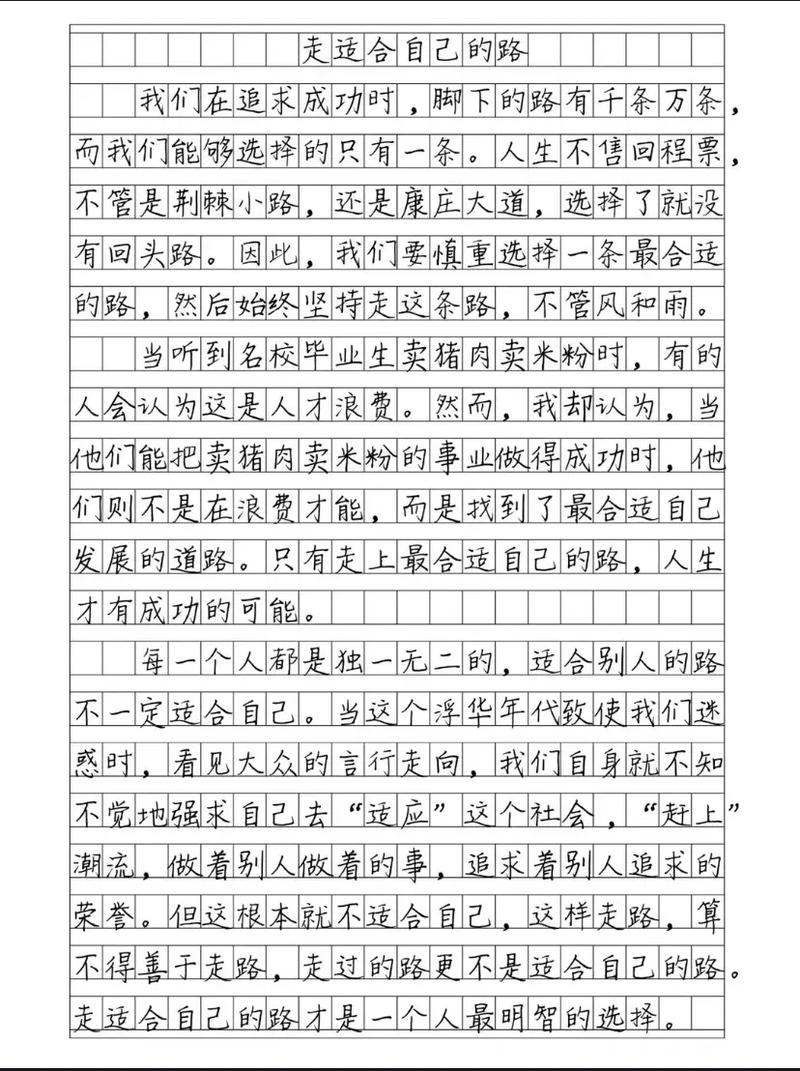 走适合自己的路
我们在追求成功时，脚下的路有千条万条，
而我们能够选择的只有一条。人生不售回程票，
不管是荆棘小路，还是康庄大道，选择了就没
有回头路。因此，我们要慎重选择一条最合适
的路，然后始终坚持走这条路，不管风和雨。
当听到名校毕业生卖猪肉卖米粉时，有的
人会认为这是人才浪费。然而，我却认为，当
他们能把卖猪肉卖米粉的事业做得成功时，他
们则不是在浪费才能，而是找到了最合适自己
发展的道路。只有走上最合适自己的路，人生
才有成功的可能。
每一个人都是独一无二的，适合别人的路
不一定适合自己。当这个浮华年代致使我们迷
惑时，看见大众的言行走向，我们自身就不知
不觉地强求自己去“适应”这个社会，“赶上”
潮流，做着别人做着的事，追求着别人追求的
荣誉。但这根本就不适合自己，这样走路，算
不得善于走路，走过的路更不是适合自己的路。
走适合自己的路才是一个人最明智的选择。